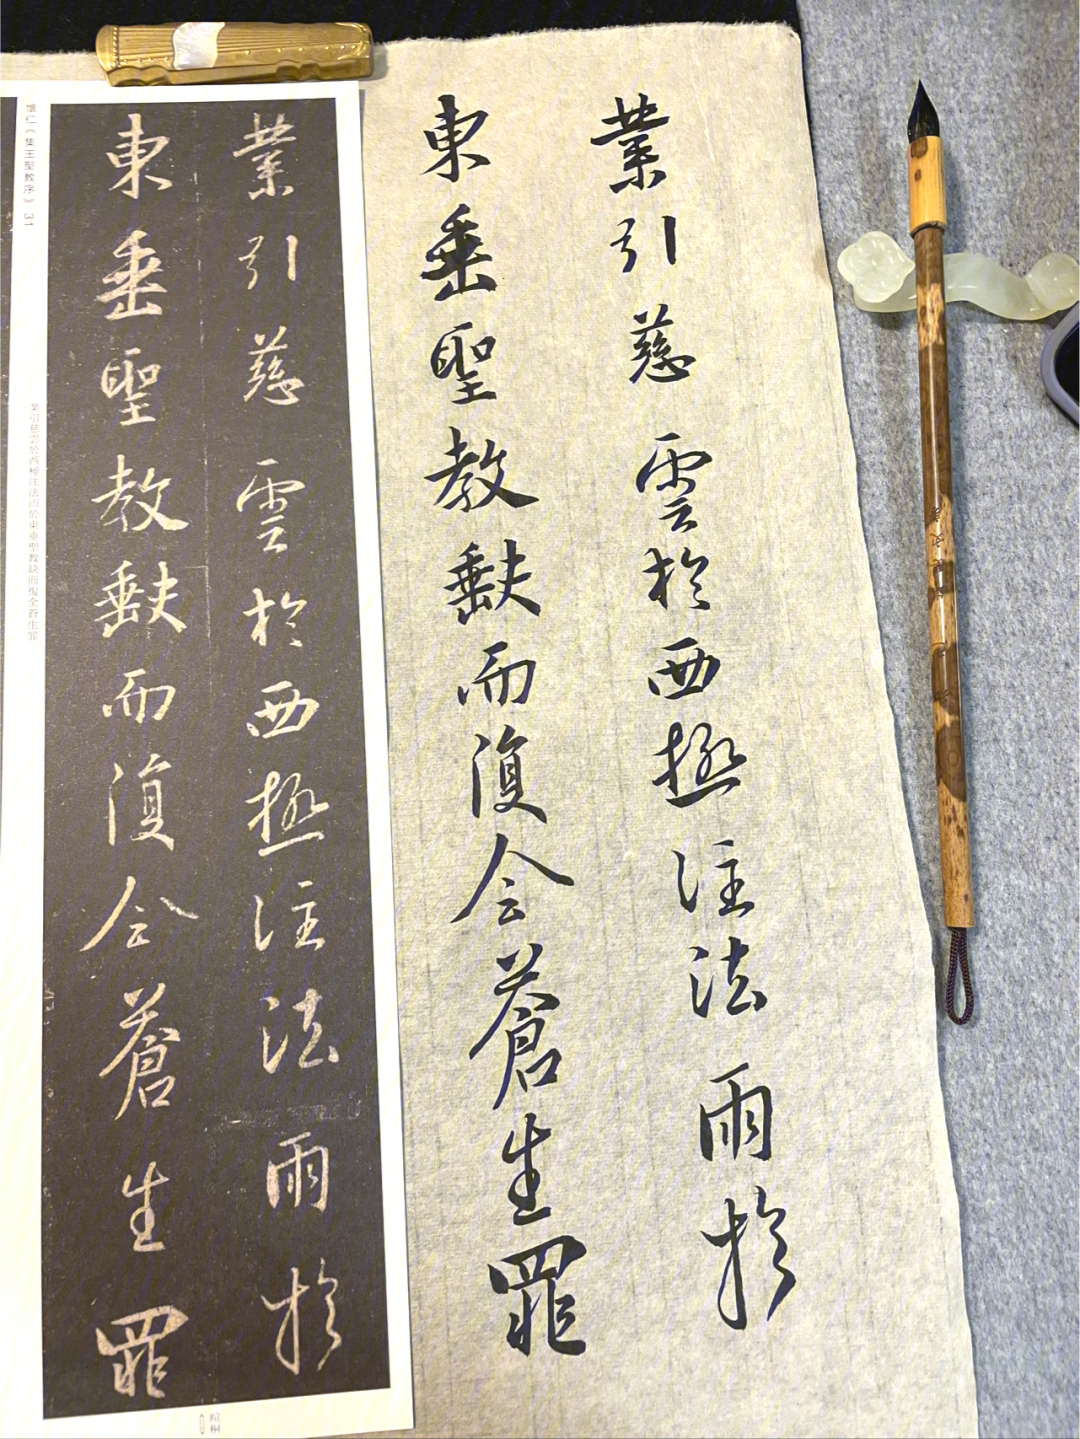 業引慈雲於西極注法雨於
東垂聖教缺而復全蒼生罪
業引慈雲於西極注法雨於
東垂聖教缺而復全蒼生罪
懷仁《集王聖教序》 31
業引慈雲於西極注法雨於東垂聖教缺而復全蒼生罪